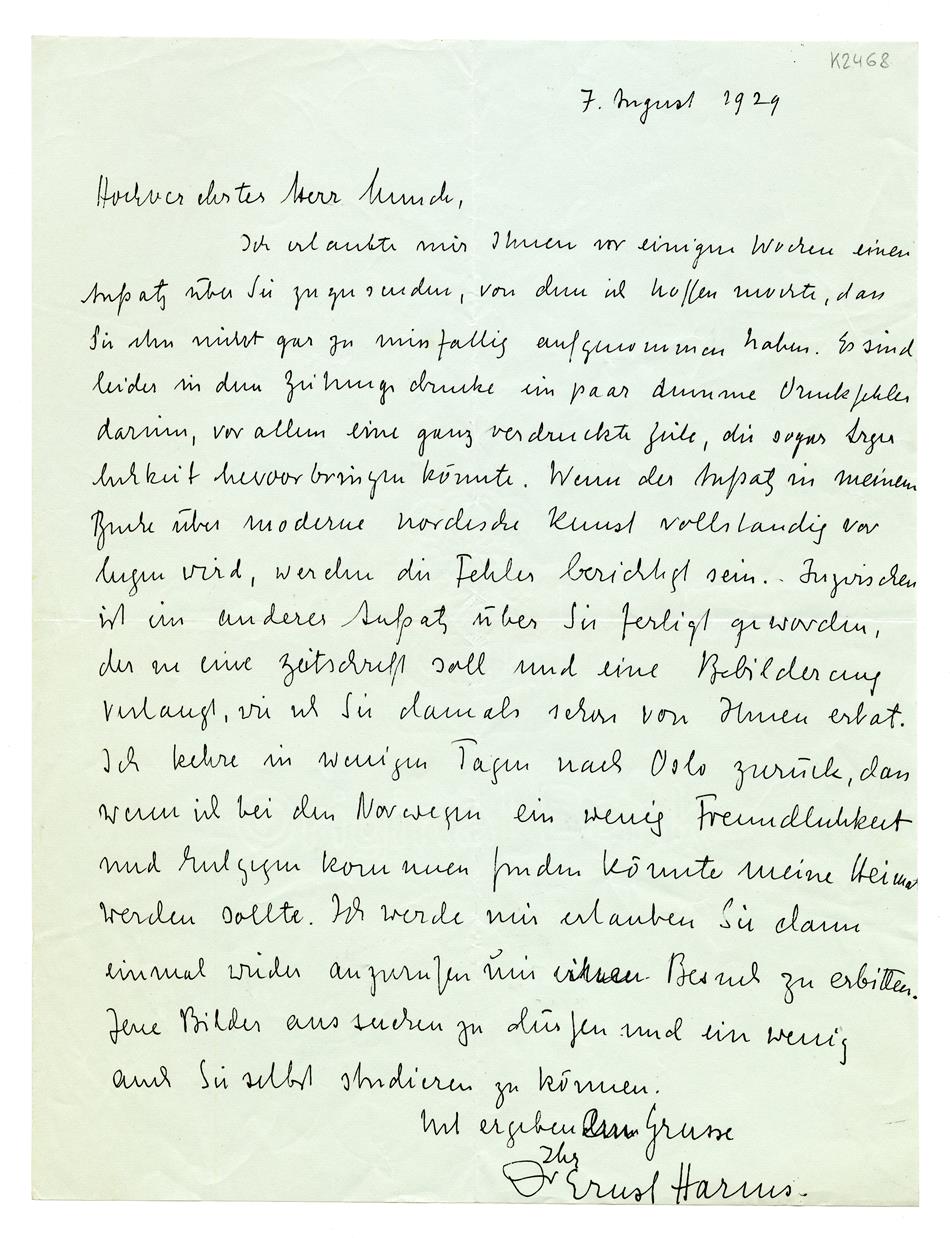 K2468
7. August 1929
Hochverehrter Herr Munch,
Ich erlaubte mir Ihnen vor einigen Wochen einen
Aufsatz über Sie zuzusenden, von dem ich hoffen mochte, dass
Sie ihn nicht gar zu missfallig aufgenommen haben. Es sind
leider in dem Zeitungsdrucke ein paar dumme Druckfehler
darinn, vor allem eine ganz verdruckte Zeile, die sogar Arger
lichkeit hervoorbringen könnte. Wenn der Aufsatz in meinem
Buche über moderne nordische Kunst vollstandig vor
liegen wird, werden die Fehler berichtigt sein. - Inzwischen
ist ein anderer Aufsatz über Sie fertigt geworden,
der in eine Zeitschrift soll und eine Bebilderung
verlangt, wie ich Sie damals schon von Ihnen erbat.
Ich kehre in wenigen Tagen nach Oslo zurück, das
wenn ich bei den Norwegen ein wenig Freundlichkeit
und Entgegen kommen finden könnte meine Heimat
werden sollte. Ich werde mir erlauben Sie dann
einmal wieder anzurufen um einen Besuch zu erbitten.
Jene Bilder aussuchen zu dürfen und ein wenig
auch Sie selbst studieren zu können.
Mit ergebendem Grusse
Ihr
Dr Ernst Harms.